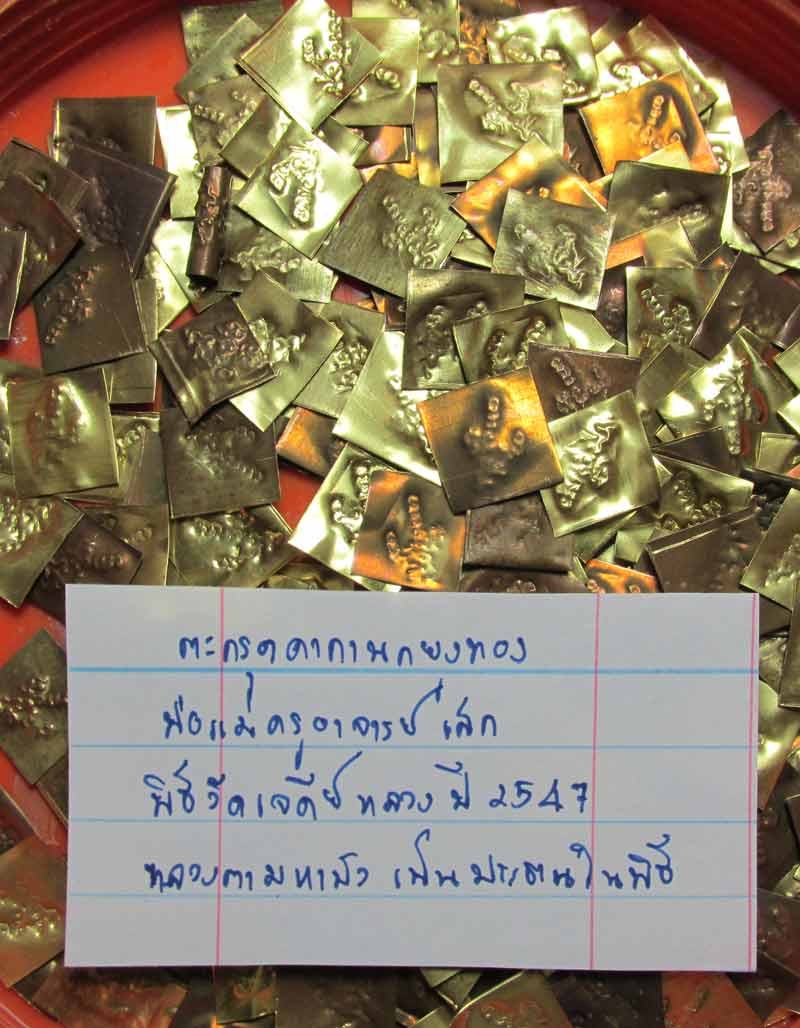 ตะกรุดคาถานกยูงทอง
พ่อแม่ครูอาจารย์เสก
พิธีวัดเจดีย์หลวง ปี 2547
หลวงตามหาบัว เป็นประธานในพิธี